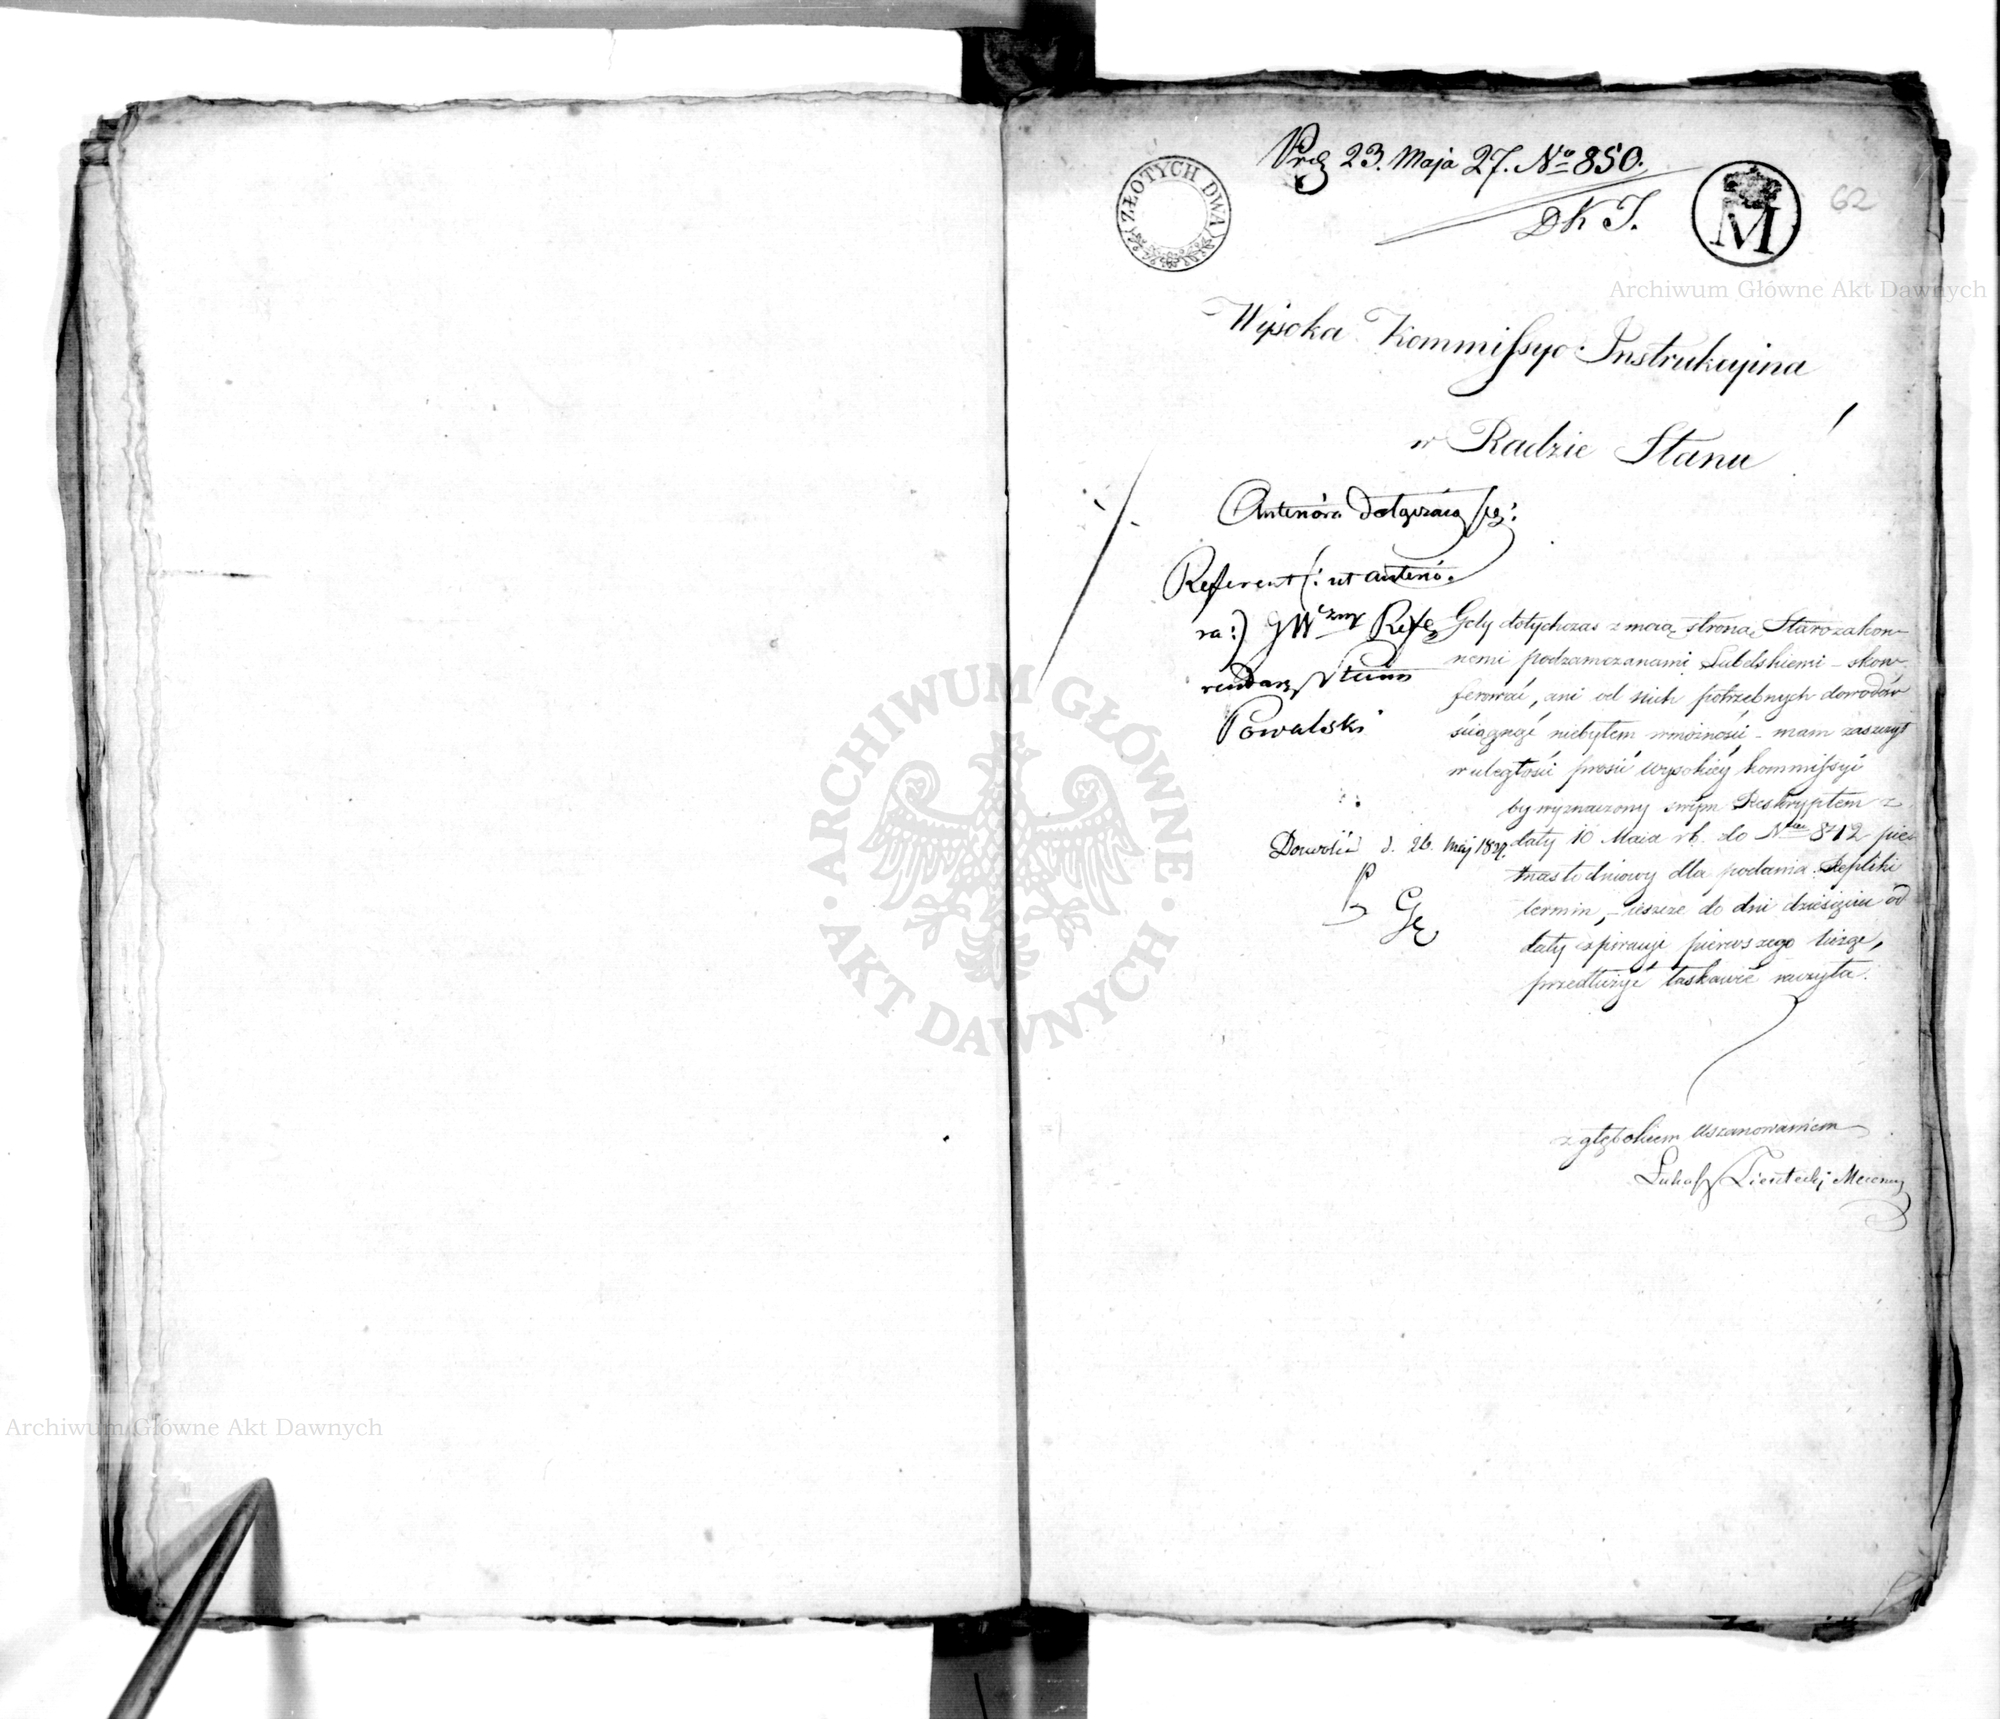 Prez 23. Maja 27. No 850.
DKJ.
ZŁOTYCH DWA
M
62
Wysoka Kommissyo Instrukcyina
w Radzie Stanu
Anteriora dołączaią się:
Referent (: ut anterio.
ra :) JWny Refe
rendarz Stanu
Powalski
Gdy dotychczas z moią stroną Starozakon-
nemi podzamczanami Lubelskiemi - skon-
ferować, ani od nich potrzebnych dowodów
ściągnąć niebyłem wmożności - mam zaszczyt
w uległości prosić Wysokiéy Kommissyi
by wyznaczony swym Reskryptem z
daty 10 Maia rb. do Nru 812 pię-
tnasto dniowy dla podania Repliki
termin, - ieszcze do dni dziesięciu od
daty expiracyi pierwszego licząc,
przedłużyć łaskawie raczyła.
Dozwolić d. 26. Maj 1827.
z głębokiem uszanowaniem
Łukasz
Archiwum Główne Akt Dawnych
Archiwum Główne Akt Dawnych
ARCHIWUM GŁÓWNE
AKT DAWNYCH